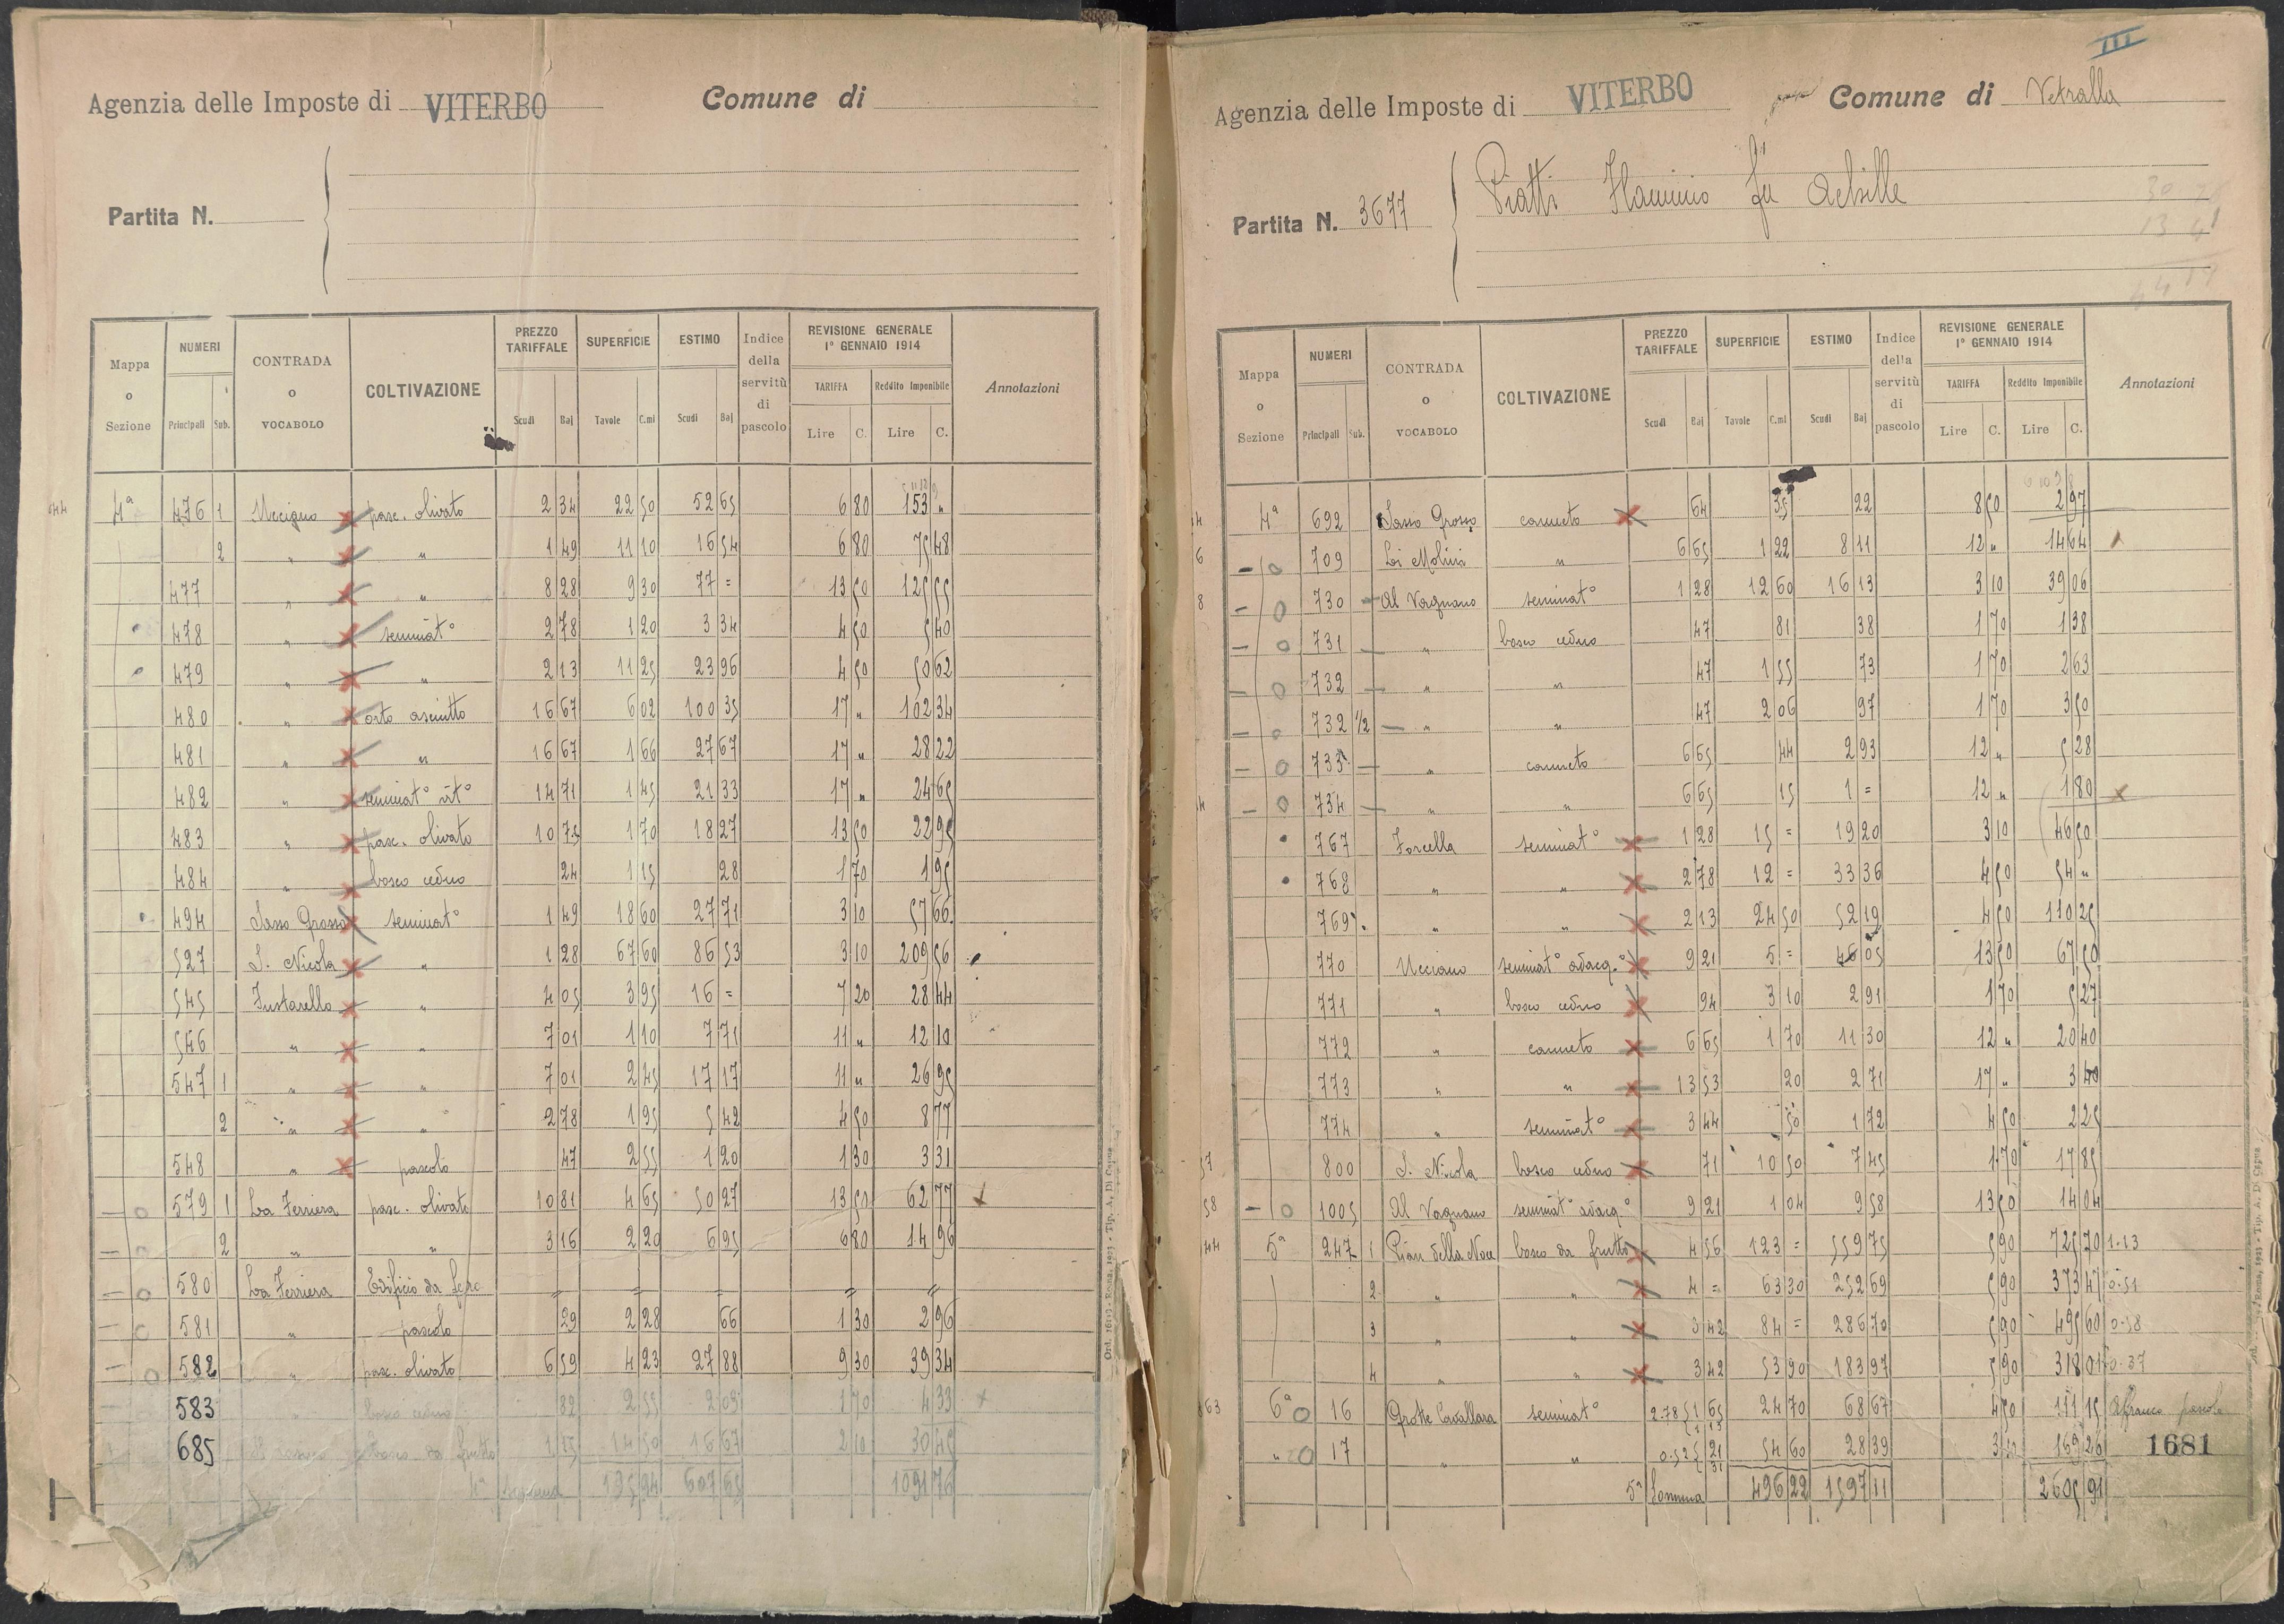 Agenzia delle Imposte di VITERBO Comune di
Partita N.
Mappa o Sezione NUMERI Principali Sub. CONTRADA o VOCABOLO COLTIVAZIONE PREZZO TARIFFALE Scudi Baj SUPERFICIE Tavole C.mi ESTIMO Scudi Baj Indice della servitù di pascolo REVISIONE GENERALE 1° GENNAIO 1914 TARIFFA Lire C. Reddito Imponibile Lire C. Annotazioni
4ª 476 1 pasc. olivato 2 34 22 50 52 65 6 80 153 "
2 " " 1 49 11 10 16 54 6 80 75 48
477 " " 8 28 9 30 77 = 13 50 125 55
478 " seminat° 2 78 1 20 3 34 4 50 5 40
479 " " 2 13 11 25 23 96 4 50 50 62
480 " orto asciutto 16 67 6 02 100 35 17 " 102 34
481 " " 16 67 1 66 27 67 17 " 28 22
482 " seminat° vit° 14 71 1 45 21 33 17 " 24 65
483 " pasc. olivato 10 75 1 70 18 27 13 50 22 95
484 " bosco ceduo 24 1 15 28 1 70 1 95
494 Sasso Grosso seminat° 1 49 18 60 27 71 3 10 57 66
527 S. Nicola " 1 28 67 60 86 53 3 10 209 56
545 Fustarello " 4 05 3 95 16 = 7 20 28 44
546 " " 7 01 1 10 7 71 11 " 12 10
547 1 " " 7 01 2 45 17 17 11 " 26 95
2 " " 2 78 1 95 5 42 4 50 8 77
548 " pascolo 47 2 55 1 20 1 30 3 31
579 1 La Ferriera pasc. olivato 10 81 4 65 50 27 13 50 62 77
2 " " 3 16 2 20 6 95 6 80 14 96
580 La Ferriera Edificio da
581 " pascolo 29 2 28 66 1 30 2 96
582 " pasc. olivato 6 59 4 23 27 88 9 30 39 34
583 " bosco ceduo 82 2 55 2 09 1 70 4 33
685 bosco da frutto 1 15 14 50 16 67 2 10 30 45
195 94 607 65 1091 76
Ord. - Roma, 1923 - Tip. A. Di Capua
III
Agenzia delle Imposte di VITERBO Comune di Vetralla
Partita N. 3677 Piatti Flaminio fu Achille
Mappa o Sezione NUMERI Principali Sub. CONTRADA o VOCABOLO COLTIVAZIONE PREZZO TARIFFALE Scudi Baj SUPERFICIE Tavole C.mi ESTIMO Scudi Baj Indice della servitù di pascolo REVISIONE GENERALE 1° GENNAIO 1914 TARIFFA Lire C. Reddito Imponibile Lire C. Annotazioni
4ª 692 Sasso Grosso canneto 64 35 22 8 50 2 97
709 Li Molini " 6 65 1 22 8 11 12 " 14 64
730 Al Vagnano seminat° 1 28 12 60 16 13 3 10 39 06
731 " bosco ceduo 47 81 38 1 70 1 38
732 " " 47 1 55 73 1 70 2 63
732 1/2 " " 47 2 06 97 1 70 3 50
733 " canneto 6 65 44 2 93 12 " 5 28
734 " " 6 65 15 1 = 12 " 1 80
767 Forcella seminat° 1 28 15 = 19 20 3 10 46 50
768 " " 2 78 12 = 33 36 4 50 54 "
769 " " 2 13 24 50 52 19 4 50 110 25
770 Ucciano seminat° adacq.° 9 21 5 = 46 05 13 50 67 50
771 " bosco ceduo 94 3 10 2 91 1 70 5 27
772 " canneto 6 65 1 70 11 30 12 " 20 40
773 " " 13 53 20 2 71 17 " 3 40
774 " seminat° 3 44 50 1 72 4 50 2 25
800 S. Nicola bosco ceduo 71 10 50 7 45 1 70 17 85
1005 Al Vagnano seminat° adacq.° 9 21 1 04 9 58 13 50 14 04
5ª 247 1 Pian della Noce bosco da frutto 4 56 123 = 559 75 5 90 725 70 1.13
2 " " 4 = 63 30 252 69 5 90 373 47 0.51
3 " " 3 42 84 = 286 70 5 90 495 60 0.58
4 " " 3 42 53 90 183 97 5 90 318 01 0.37
6ª 16 Grotte Cavallara seminat° 2.78 24 70 68 67 4 50 111 15 Affranco pascolo
" 17 " " 0.52 54 60 28 39 3 10 169 26 1681
5ª Somma 496 22 1597 11 2605 91